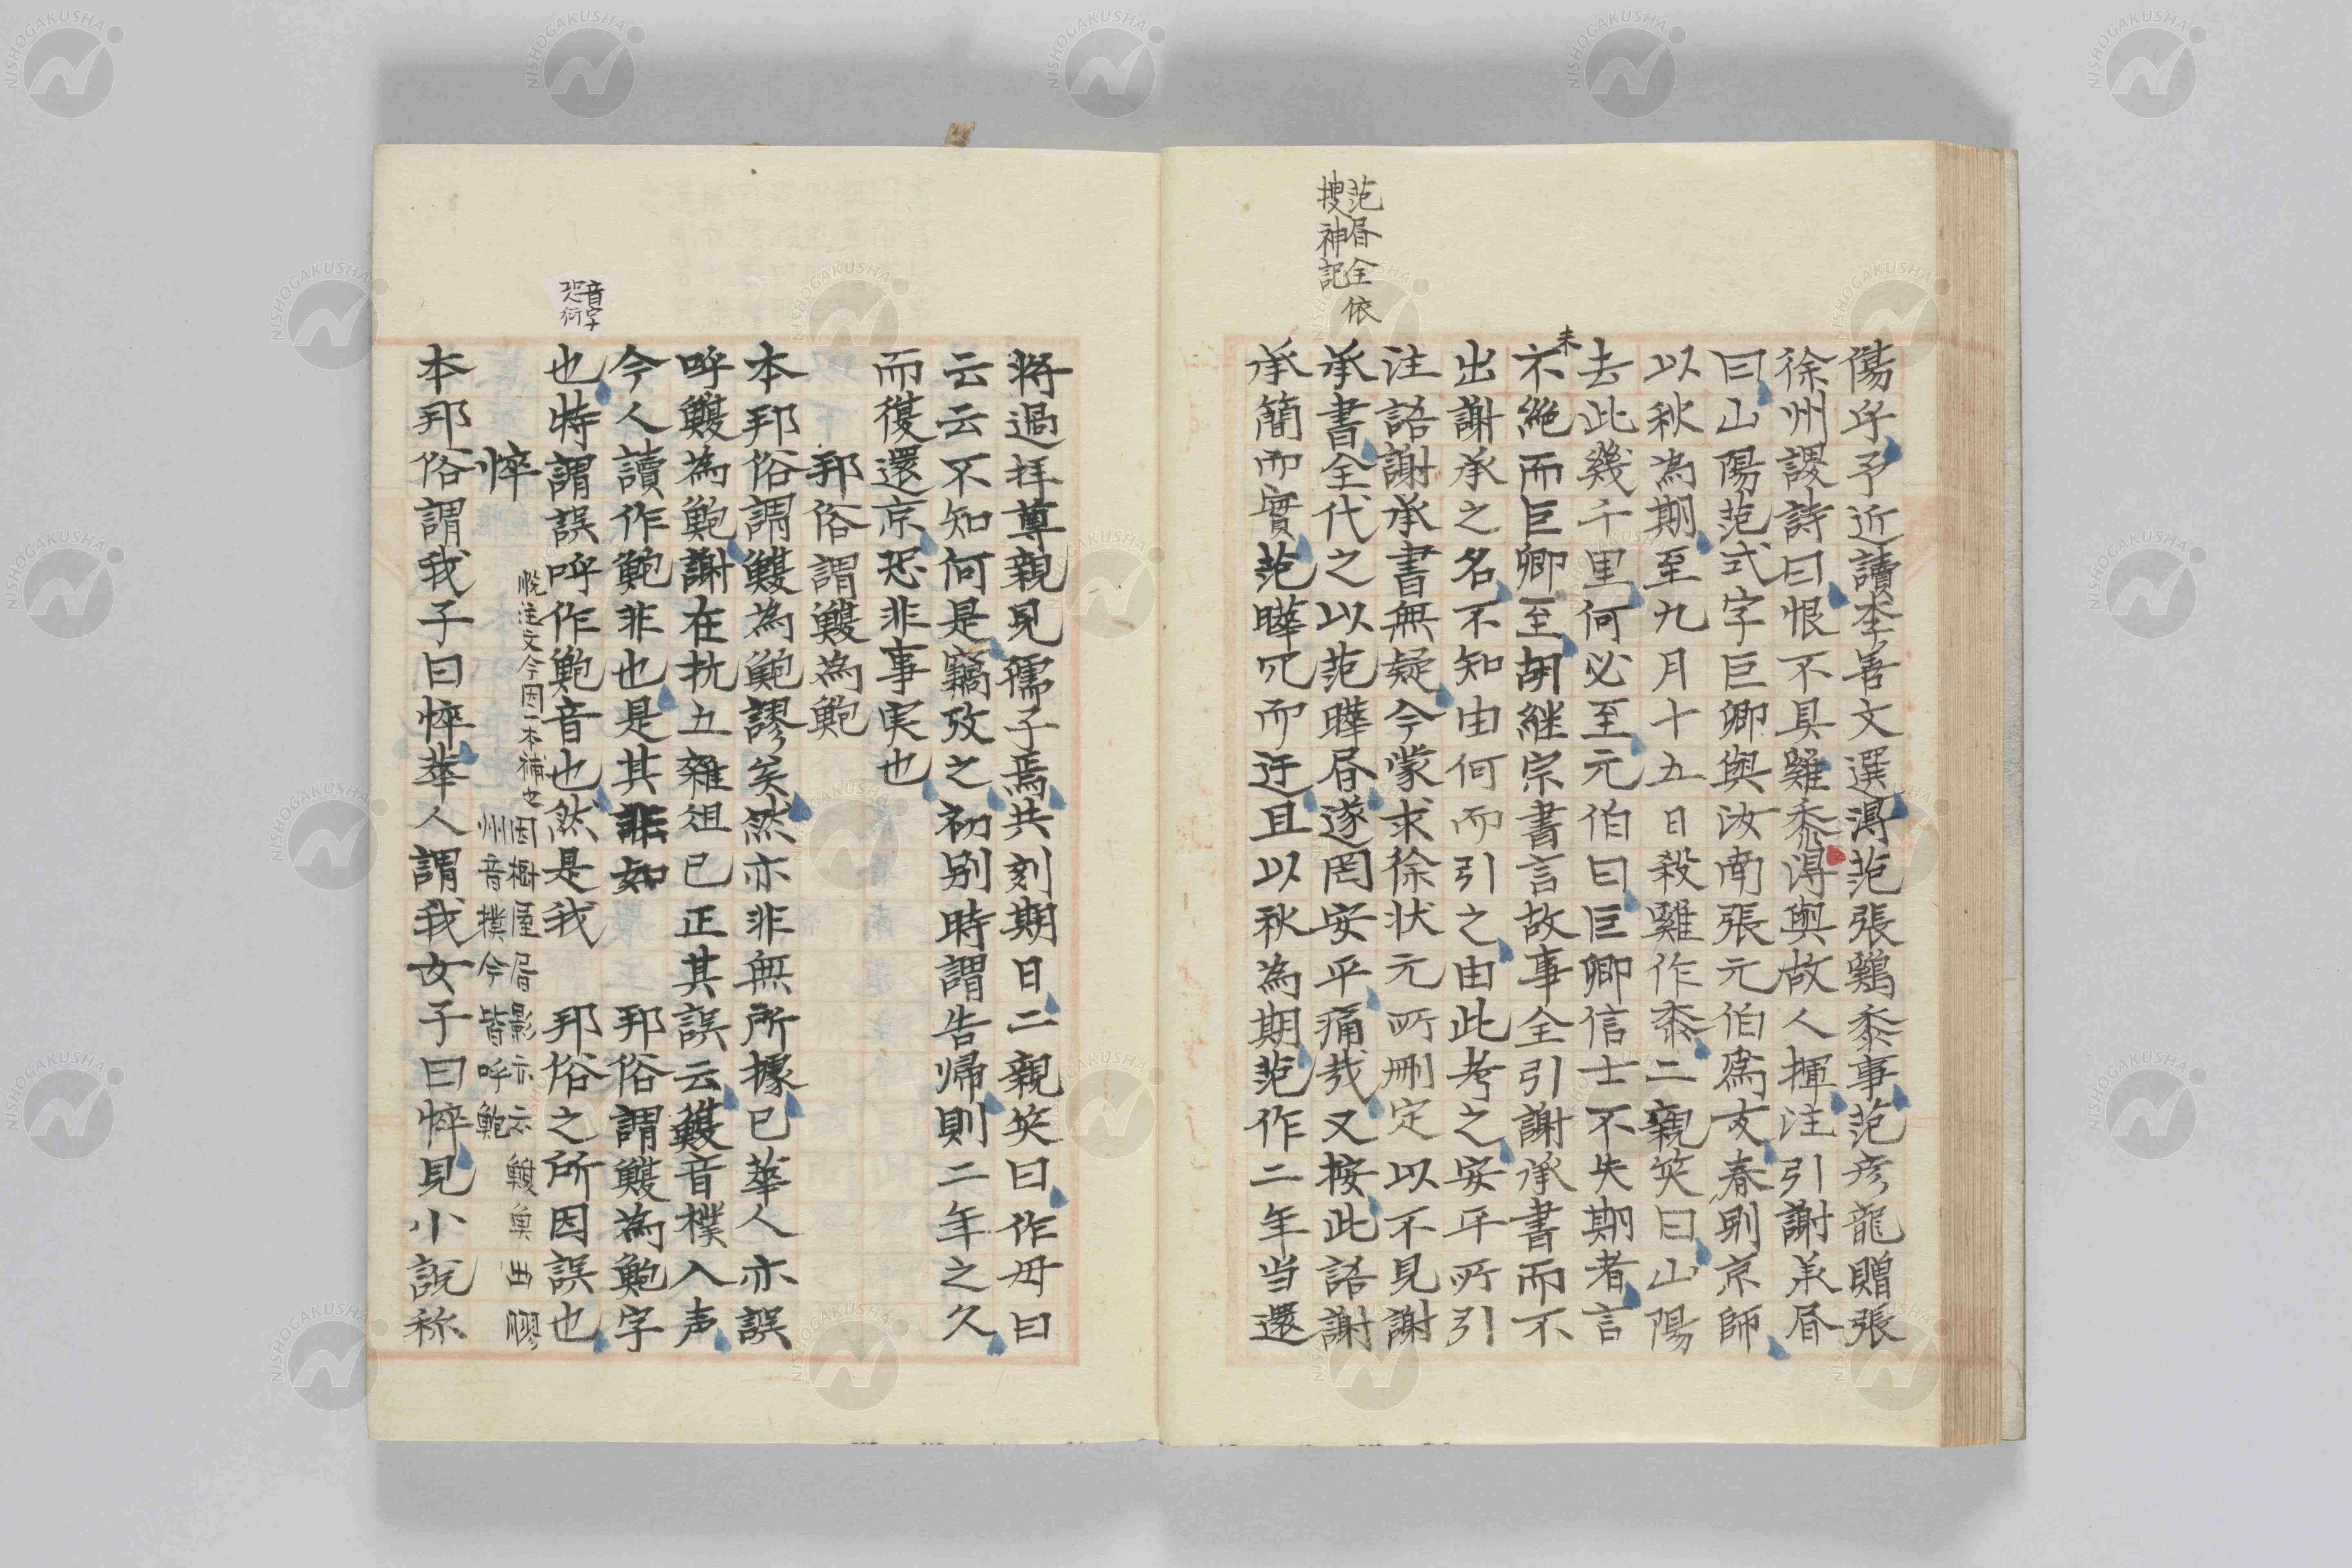 范㫺全依
搜神記
傷乎予近讀李善文選淂范張鶏黍事范彦龍贈張
徐州謖詩曰恨不具雞黍淂與故人揮注引謝承㫺
曰山陽范式字巨卿與汝南張元伯爲友春別京師
以秋為期至九月十五日殺雞作黍二親笑曰山陽
去此幾千里何必至元伯曰巨卿信士不失期者言
未
不絶而巨卿至胡継宗書言故事全引謝承書而不
出謝承之名不知由何而引之由此考之安平所引
注語謝承書無疑今蒙求徐状元所刪定以不見謝
承書全代之以范曄㫺遂罔安平痛哉又桉此語謝
承簡而實范曄冗而迂且以秋為期范作二年当還
将過拝尊親見孺子焉共刻期日二親笑曰作母曰
云云不知何是竊攷之初别時謂告帰則二年之久
而復還京恐非事実也
邦俗謂鰒為鮑
本邦俗謂鰒為鮑謬矣然亦非無所據已華人亦誤
呼鰒為鮑謝在杭五雜俎已正其誤云鰒音樸入声
今人讀作鮑非也是其非如 邦俗謂鰒為鮑字
音字
恐衍
也特謂誤呼作鮑音也然是我 邦俗之所因誤也
悴
脱注文今因一本補也
因樹屋㫺影亦云鰒魚出膠
州音撲今皆呼鮑
本邦俗謂我子曰悴華人謂我女子曰悴見小説称